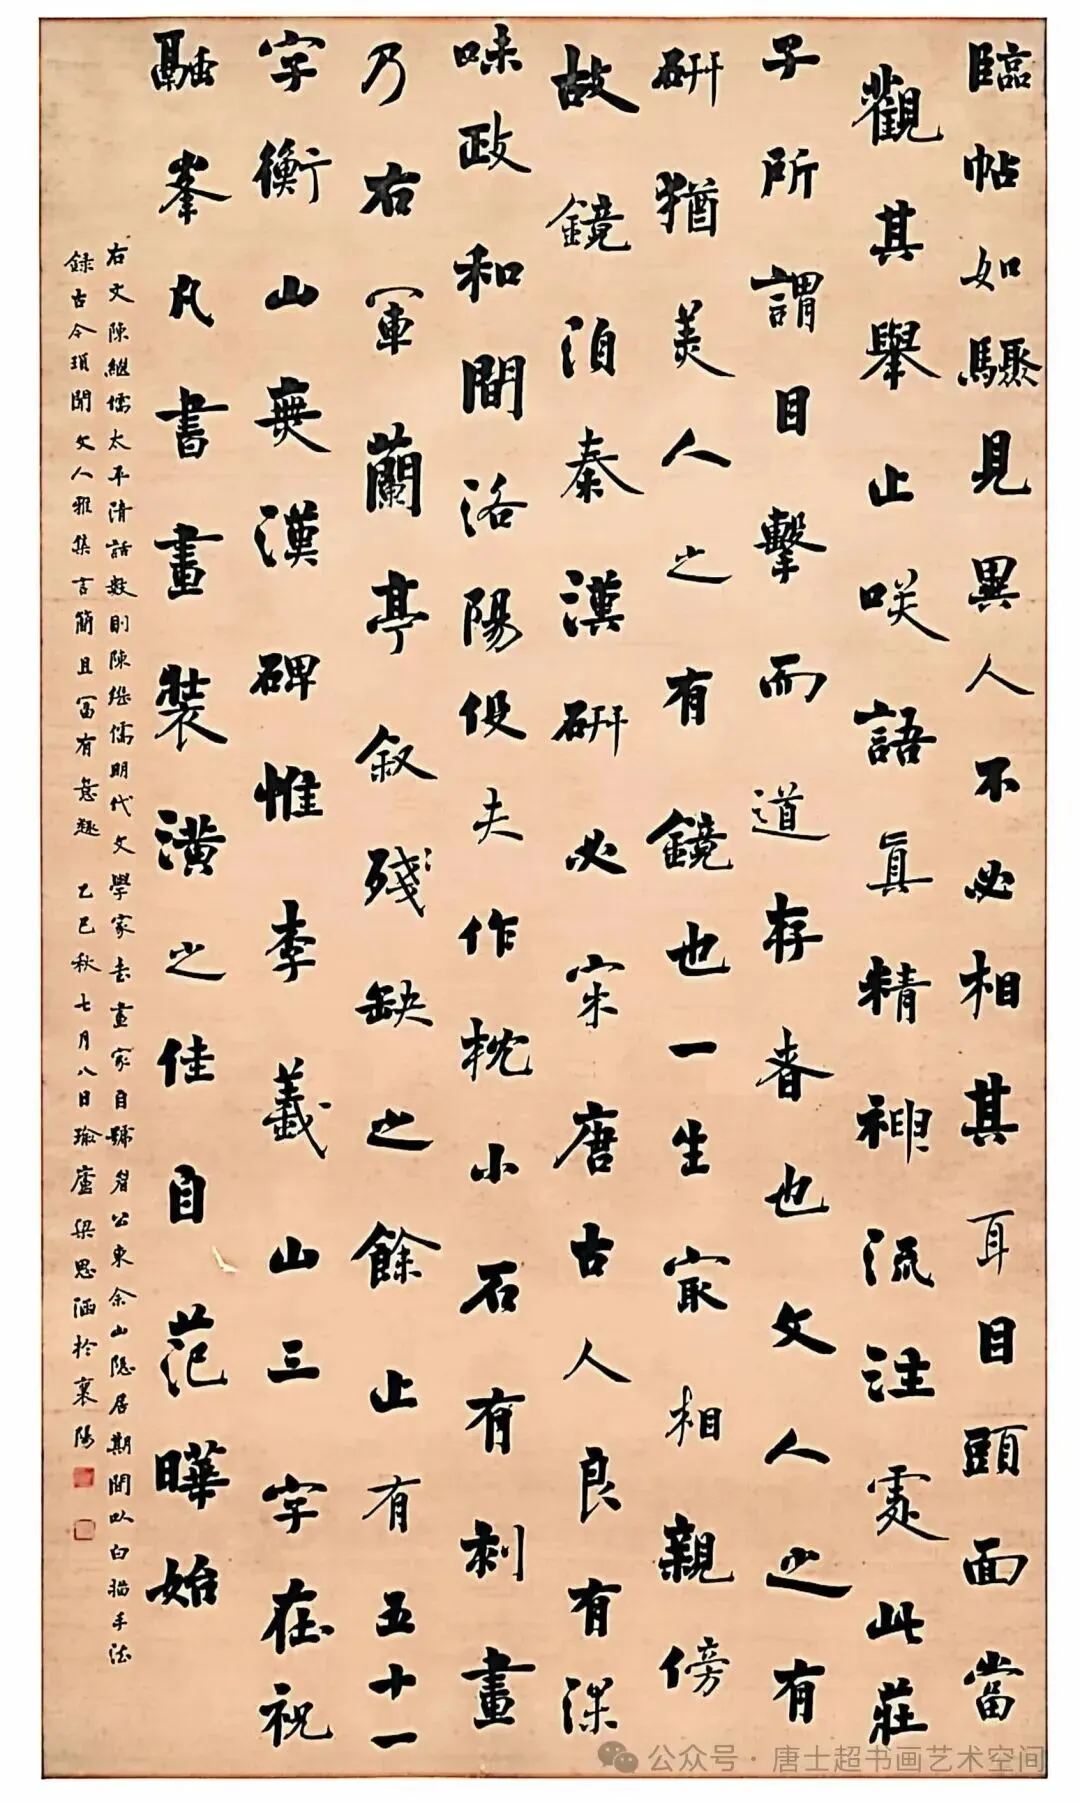 臨帖如驟見異人不必相其耳目頭面當
觀其舉止咲語眞精神流注處此莊
子所謂目擊而道存者也文人之有
硏猶美人之有鏡也一生㝡相親傍
故鏡須秦漢硏必宋唐古人良有深
味政和間洛陽役夫作枕小石有刻畫
乃右軍蘭亭敘殘缺之餘止有五十一
字衡山無漢碑惟李義山三字在祝
融峯凡書畫裝潢之佳自范曄始
右文陳繼儒太平清話數則陳繼儒明代文學家書畫家自號眉公東佘山隱居期間以白描手法
錄古今瑣聞文人雅集言簡且富有意趣 乙巳秋七月八日瑜廬梁思涵於襄陽
公众号·唐士超书画艺术空间